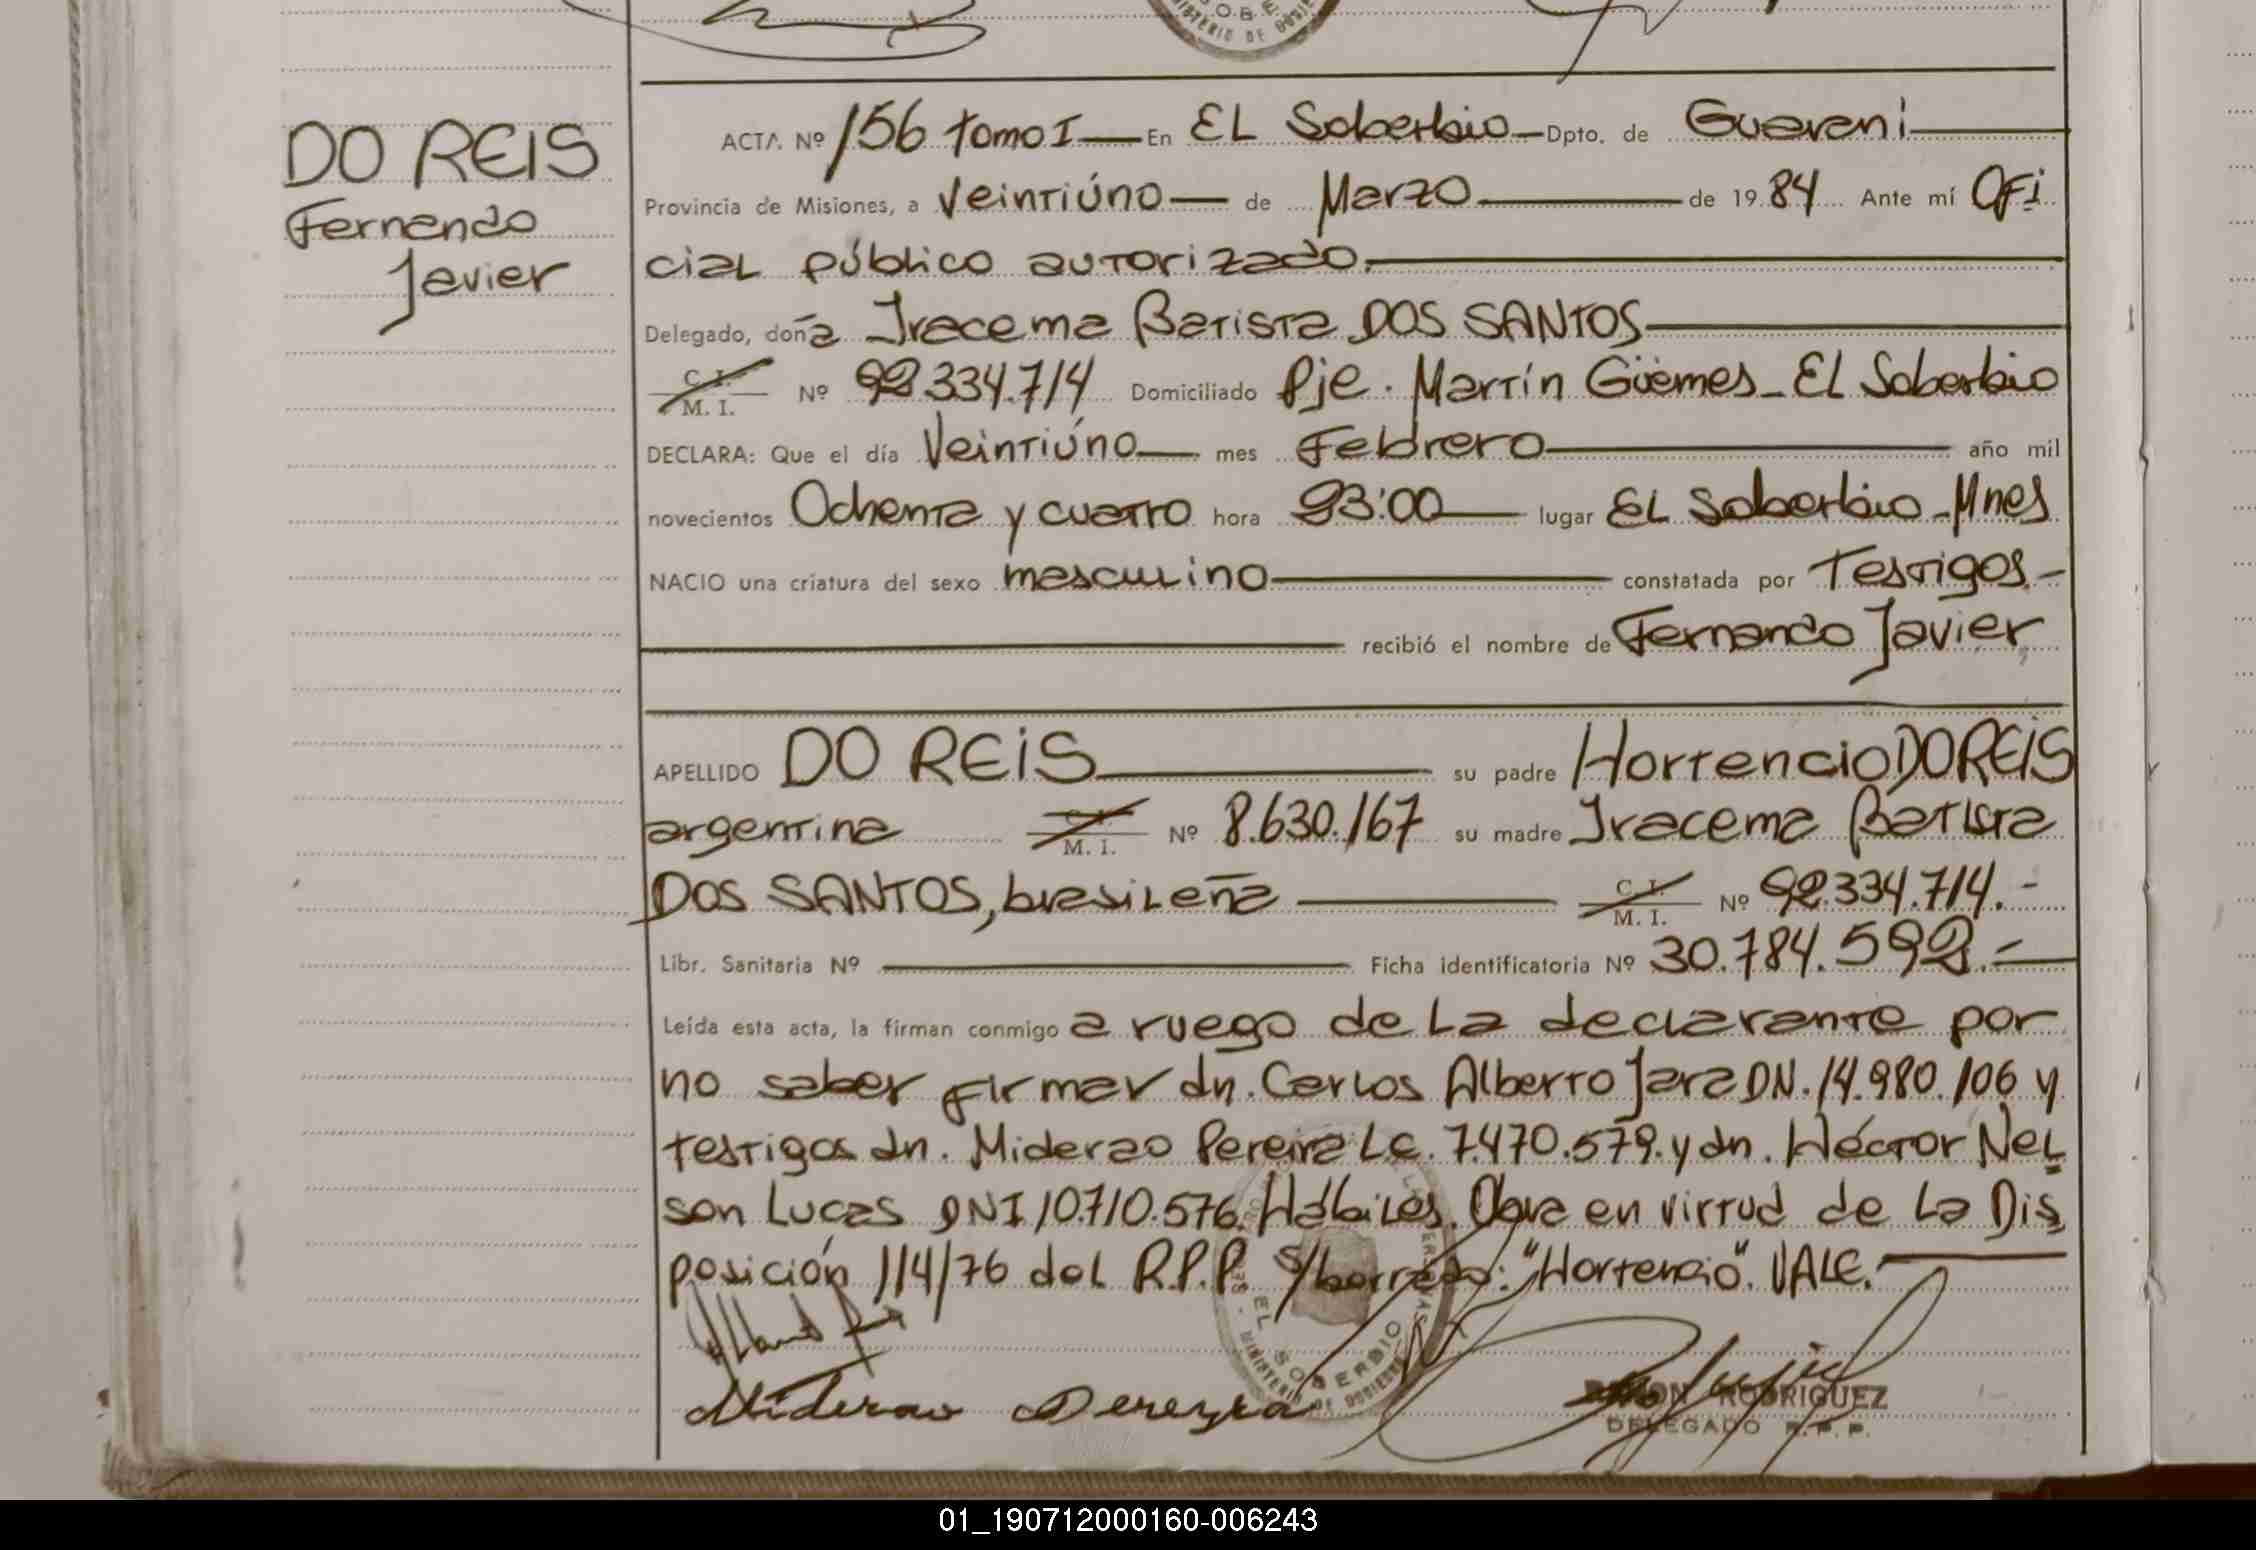 DO REIS
Fernando
Javier
ACTA Nº 156 tomo I — En EL Soberbio — Dpto. de Guarani
Provincia de Misiones, a Veintiúno — de Marzo de 1984 Ante mí Ofi
cial público autorizado.
Delegado, doña Iracema Batista DOS SANTOS
C. I. M. I. Nº 92.334.714 Domiciliado Pje. Martín Güemes - EL Soberbio
DECLARA: Que el día Veintiúno — mes Febrero año mil
novecientos Ochenta y cuatro hora 23:00 lugar EL Soberbio - Mnes
NACIO una criatura del sexo masculino constatada por Testigos.-
recibió el nombre de Fernando Javier
APELLIDO DO REIS su padre Hortencio DO REIS
argentina C. I. M. I. Nº 8.630.167 su madre Iracema Batista
DOS SANTOS, brasileña C. I. M. I. Nº 92.334.714.-
Libr. Sanitaria Nº Ficha identificatoria Nº 30.784.592.-
Leída esta acta, la firman conmigo a ruego de La declarante por
no saber firmar dn. Carlos Alberto Jara DN. 14.980.106 y
testigos dn. Miderao Pereira L.E. 7.470.579. y dn. Héctor Nel
son Lucas DNI 10.710.576. Hábiles. Obra en virtud de La Dis
posición 114/76 del R.P.P. S/borrado: "Hortencio". VALE.
EL SOBERBIO
MINISTERIO DE GOBIERNO
Miderao Pereyra
RAMON RODRIGUEZ
DELEGADO R.P.P.
01_190712000160-006243